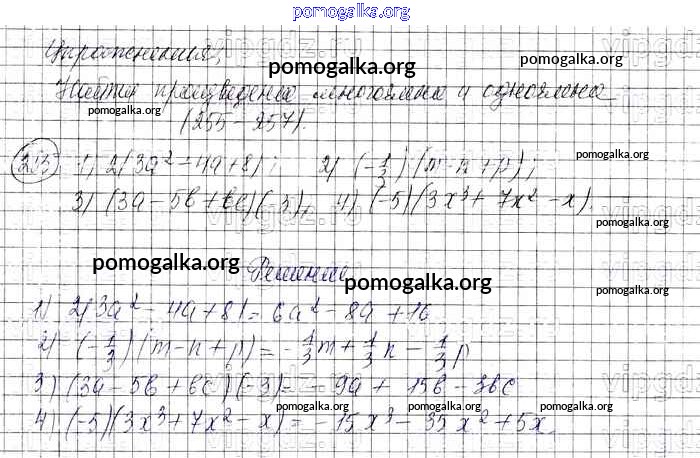 pomogalka.org
Упражнения,
pomogalka.org
Найти произведение многочлена и одночлена
pomogalka.org
pomogalka.org
(255-257).
255 1) 2(3a² - 4a + 8); 2) (-1/3)(m-n+p);
pomogalka.org
3) (3a - 5b + bc)(-3), 4) (-5)(3x³ + 7x² - x).
pomogalka.org
pomogalka.org Решение
pomogalka.org
1) 2(3a² - 4a + 8) = 6a² - 8a + 16
2) (-1/3)(m - n + p) = -1/3m + 1/3n - 1/3p
3) (3a - 5b + bc)(-3) = -9a + 15b - 3bc
pomogalka.org pomogalka.org pomogalka.org
4) (-5)(3x³ + 7x² - x) = -15x³ - 35x² + 5x.